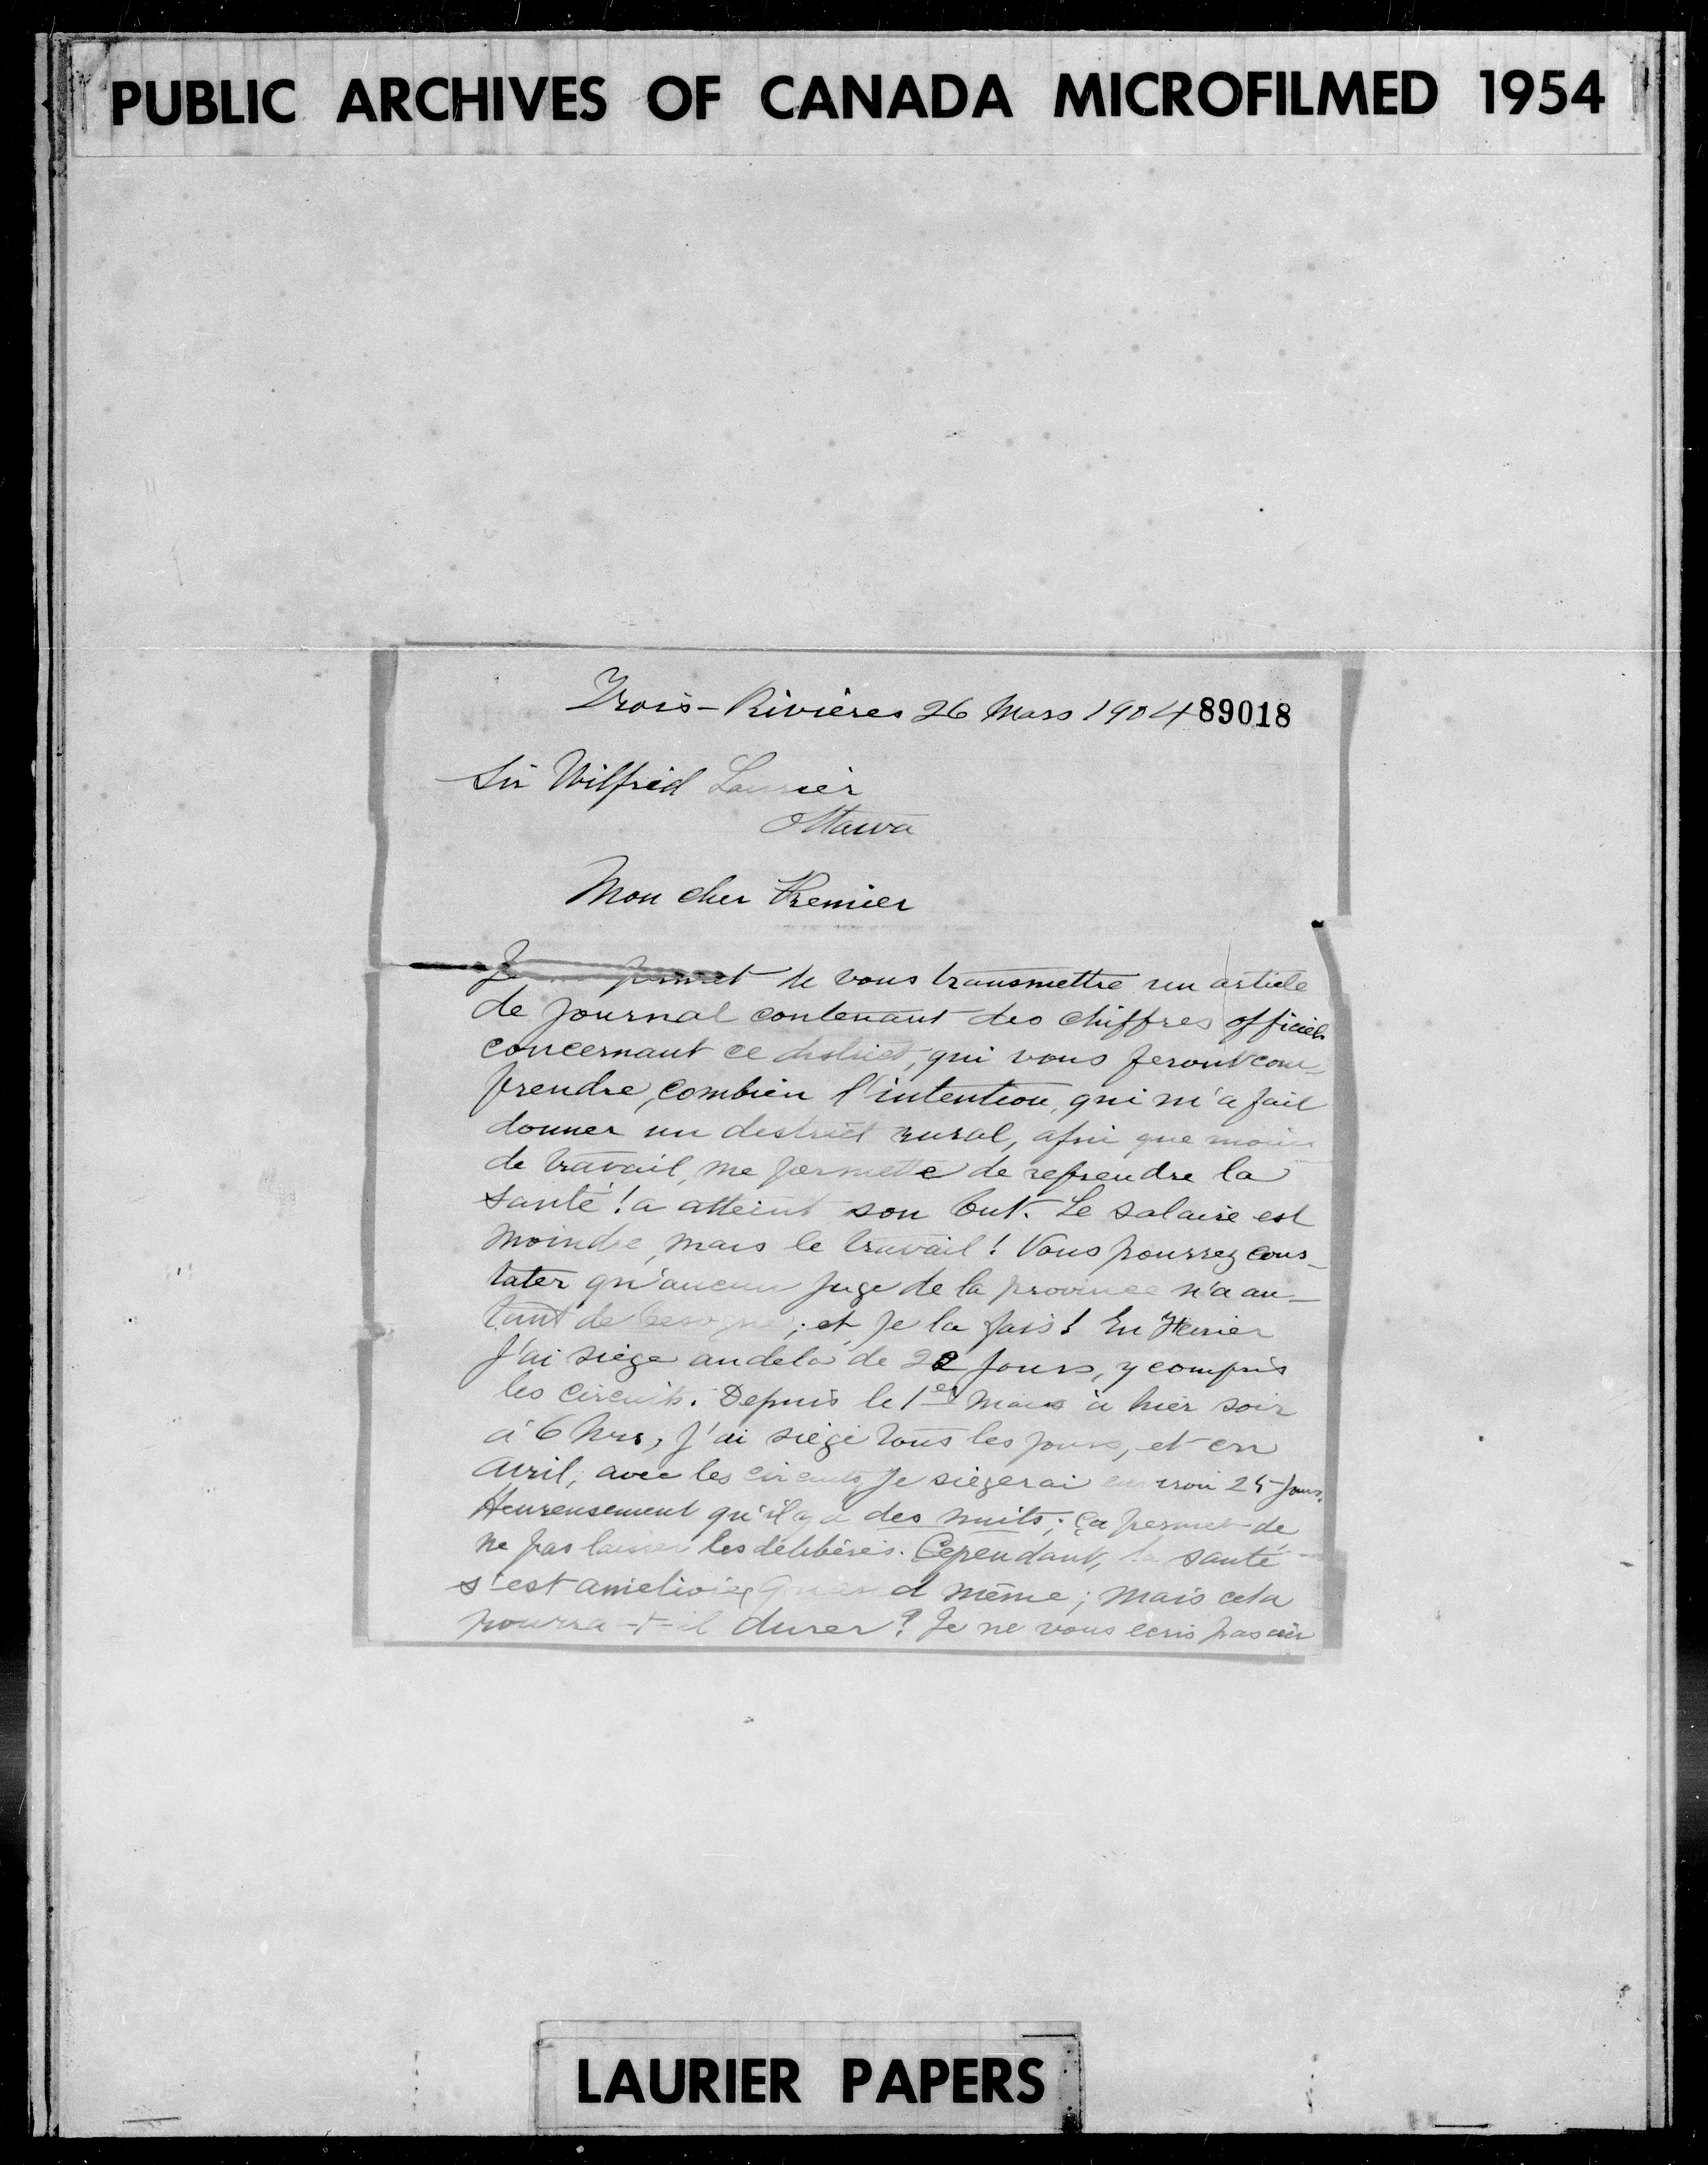 PUBLIC ARCHIVES OF CANADA MICROFILMED 1954
Trois-Rivières 26 Mars 1904 89018
Sir Wilfrid Laurier
Ottawa
Mon cher Premier
Je me permet de vous transmettre un article
de journal contenant des chiffres officiels
concernant ce district, qui vous feront com-
prendre, combien l'intention, qui m'a fait
donner un district rural, afin que moins
de travail, me permette de reprendre la
santé! a atteint son but. Le salaire est
moindre, mais le travail! Vous pourrez cons-
tater qu'aucun juge de la province n'a au-
tant de besogne; et je la fais! En Février
j'ai siégé audela de 22 jours, y compris
les circuits. Depuis le 1er Mars à hier soir
à 6 hrs, j'ai siégé tous les jours, et en
Avril, avec les circuits, je siégerai environ 25 jours.
Heureusement qu'il y a des nuits; ça permet de
ne pas laisser les délibérés. Cependant, la santé
s'est améliorée quand même; mais cela
pourra-t-il durer? Je ne vous écris pas
LAURIER PAPERS